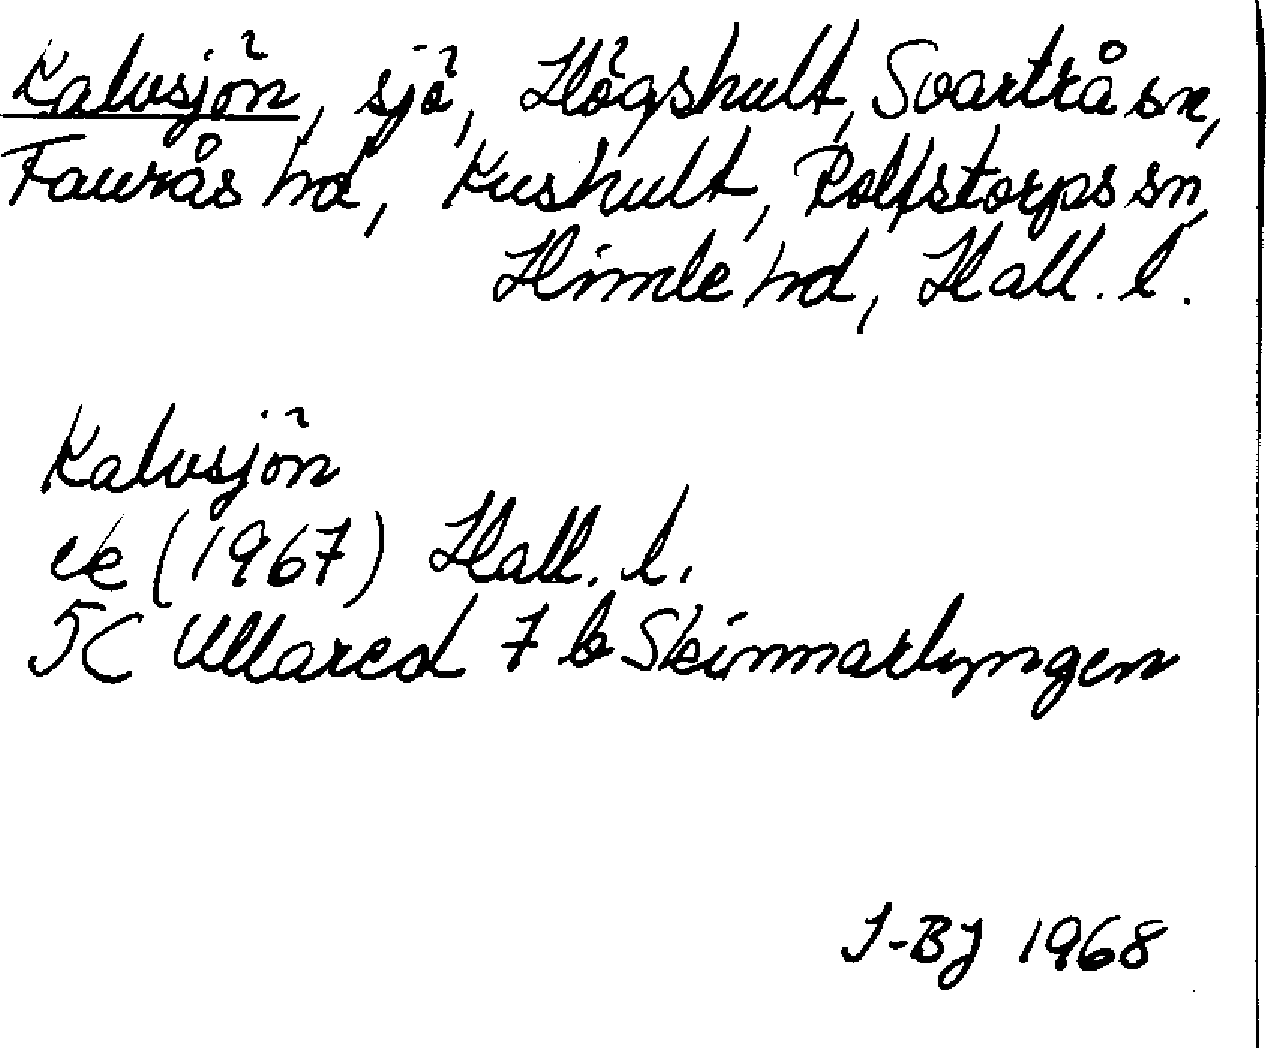 Kalvsjön, sjö, Högshult, Svartrå sn,
Faurås hd, Kushult, Rolfstorps sn,
Himle hd, Hall. l.
Kalvsjön
ek (1967) Hall. l.
5C Ullared 7 b Skinnarlyngen
I-BJ 1968